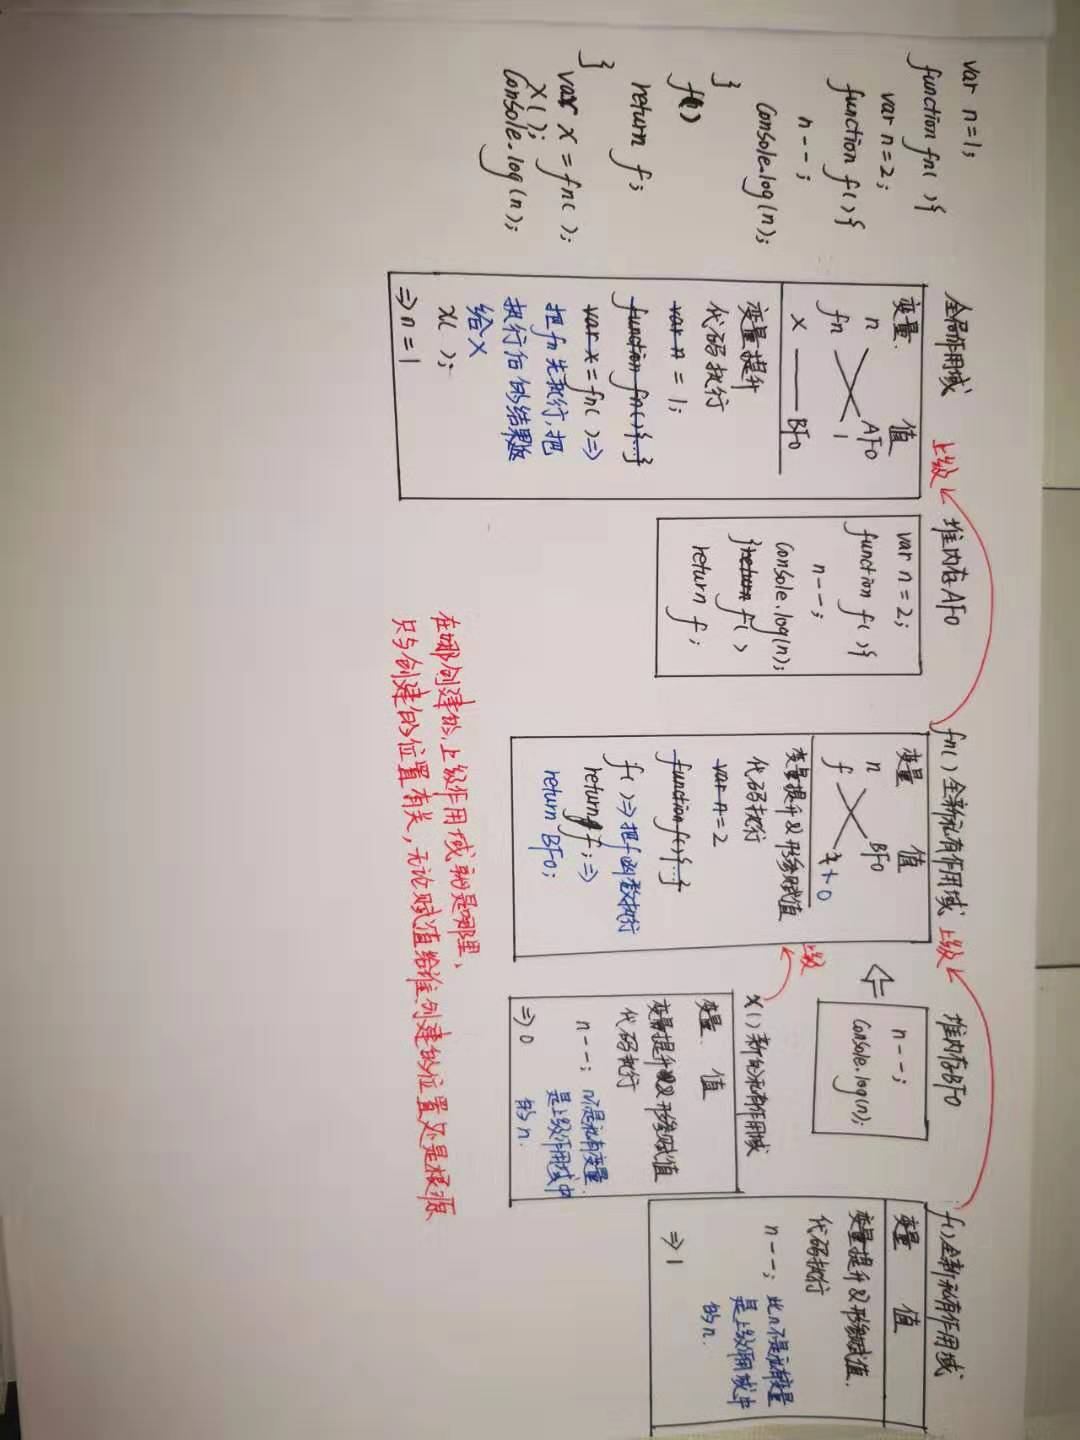 var n=1;
function fn(){
var n=2;
function f(){
n--;
Console.log(n);
}
f()
return f;
}
var x=fn();
x();
Console.log(n);
全局作用域
变量 值
n AF0
fn 1
x BF0
变量提升
代码执行
var n = 1;
function fn(){...}
var x = fn()=>
把fn先执行,把
执行后的结果返
给x
x( );
=> n = 1
上级
堆内存AF0
var n=2;
function f(){
n--;
Console.log(n);
}return f( )
return f;
fn()全新私有作用域
变量 值
n BF0
f 2 1 0
变量提升&形参赋值
代码执行
var n=2
function f(){...}
f()=>把f函数执行
return f;=>
return BF0;
上级
堆内存BF0
n--;
Console.log(n);
上级
x()新的私有作用域
变量 值
变量提升&形参赋值
代码执行
n--; n不是私有变量
是上级作用域中
的n.
=> 0
f()全新私有作用域
变量 值
变量提升&形参赋值.
代码执行
n--; 此n不是私有变量
是上级作用域中
的n.
=> 1
在哪创建的,上级作用域就是哪里、
只与创建的位置有关,无论赋值给谁,创建的位置处是根源